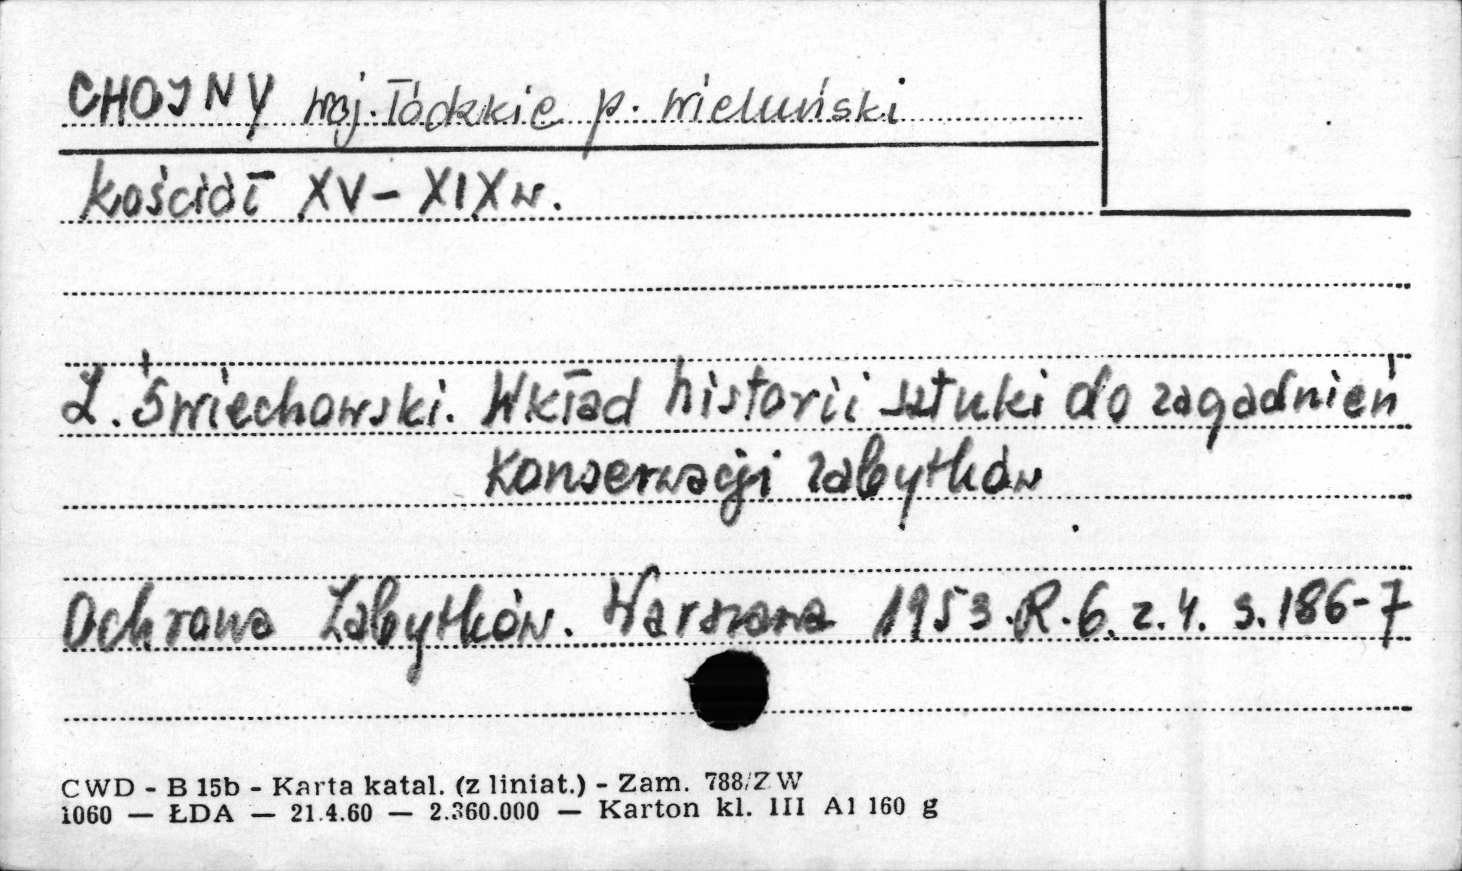 CHOJNY woj. łódzkie p. wieluński
Kościół XV - XIX w.
Z. Świechowski. Wkład historii sztuki do zagadnień
konserwacji zabytków
Ochrona Zabytków. Warszawa 1953. R. 6. z. 4. s. 186-7
CWD - B 15b - Karta katal. (z liniat.) - Zam. 788/ZW
1060 — ŁDA — 21.4.60 — 2.360.000 — Karton kl. III A1 160 g